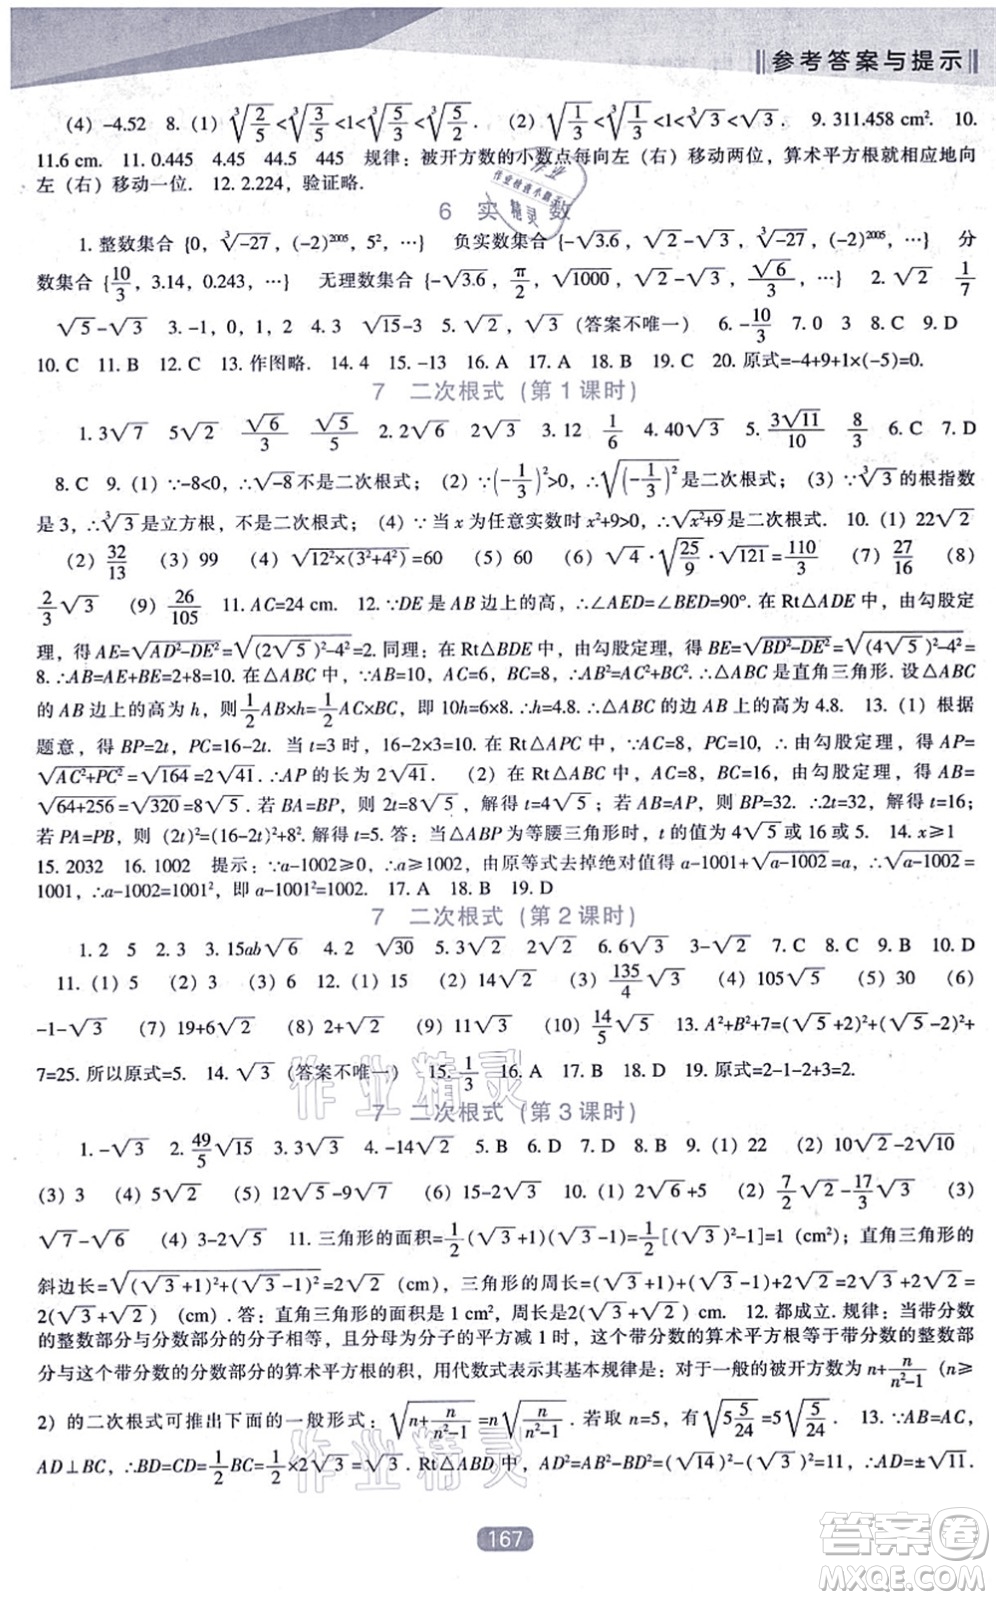 参考答案与提示
(4) -4.52 8. (1) ∛(2/5)<∛(3/5)<1<∛(5/3)<∛(5/2). (2) √(1/3)<∛(1/3)<1<∛3<√3. 9. 311.458 cm². 10.
11.6 cm. 11. 0.445 4.45 44.5 445 规律：被开方数的小数点每向左（右）移动两位，算术平方根就相应地向
左（右）移动一位. 12. 2.224，验证略.
6 实 数
1. 整数集合 {0，∛-27，(-2)²⁰⁰⁵，5²，…} 负实数集合 {-√3.6，√2-√3，∛-27，(-2)²⁰⁰⁵，…} 分
数集合 {10/3，3.14，0.243，…} 无理数集合 {-√3.6，π/2，√1000，√2-√3，√6/3，…} 2. √2 1/7
√5-√3 3. -1，0，1，2 4. 3 √15-3 5. √2，√3（答案不唯一） 6. -10/3 7. 0 3 8. C 9. D
10. C 11. B 12. C 13. 作图略. 14. 4 15. -13 16. A 17. A 18. B 19. C 20. 原式=-4+9+1×(-5)=0.
7 二次根式（第 1 课时）
1. 3√7 5√2 √6/3 √5/5 2. 2√6 2√3 3. 12 1/6 4. 40√3 5. 3√11/10 8/3 6. C 7. D
8. C 9. (1) ∵-8<0，∴√-8不是二次根式；(2) ∵(-1/3)²>0，∴√(-1/3)²是二次根式；(3) ∵∛3的根指数
是 3，∴∛3是立方根，不是二次根式；(4) ∵当 x 为任意实数时 x²+9>0，∴√(x²+9)是二次根式. 10. (1) 22√2
(2) 32/13 (3) 99 (4) √(12²×(3²+4²))=60 (5) 60 (6) √4·√(25/9)·√121=110/3 (7) 27/16 (8)
2/3√3 (9) 26/105 11. AC=24 cm. 12. ∵DE 是 AB 边上的高，∴∠AED=∠BED=90°. 在 Rt△ADE 中，由勾股定
理，得 AE=√(AD²-DE²)=√((2√5)²-4²)=2. 同理：在 Rt△BDE 中，由勾股定理，得 BE=√(BD²-DE²)=√((4√5)²-4²)=
8. ∴AB=AE+BE=2+8=10. 在△ABC 中，∵AB=10，AC=6，BC=8，∴AB²=AC²+BC². ∴△ABC 是直角三角形. 设△ABC
的 AB 边上的高为 h，则1/2AB×h=1/2AC×BC，即 10h=6×8. ∴h=4.8. ∴△ABC 的 AB 边上的高为 4.8. 13. (1) 根据
题意，得 BP=2t，PC=16-2t. 当 t=3 时，16-2×3=10. 在 Rt△APC 中，∵AC=8，PC=10，∴由勾股定理，得 AP=
√(AC²+PC²)=√164=2√41. ∴AP 的长为 2√41. (2) 在 Rt△ABC 中，∵AC=8，BC=16，∴由勾股定理，得 AB=
√(64+256)=√320=8√5. 若 BA=BP，则 2t=8√5，解得 t=4√5；若 AB=AP，则 BP=32. ∴2t=32，解得 t=16；
若 PA=PB，则 (2t)²=(16-2t)²+8². 解得 t=5. 答：当△ABP 为等腰三角形时，t 的值为 4√5或 16 或 5. 14. x≥1
15. 2032 16. 1002 提示：∵a-1002≥0，∴a≥1002，由原等式去掉绝对值得 a-1001+√(a-1002)=a，∴√(a-1002)=
1001，∴a-1002=1001²，即 a-1001²=1002. 17. A 18. B 19. D
7 二次根式（第 2 课时）
1. 2 5 2. 3 3. 15ab√6 4. 2 √30 5. 3√2 2√2 6. 6√3 3-√2 7. C 8. C 9. B 10. D
11. (1) 5 (2) 3 (3) 6 12. (1) 15 (2) 14√2 (3) 135/4√3 (4) 105√5 (5) 30 (6)
-1-√3 (7) 19+6√2 (8) 2+√2 (9) 11√3 (10) 14/5√5 13. A²+B²+7=(√5+2)²+(√5-2)²+
7=25. 所以原式=5. 14. √3（答案不唯一） 15. 1/3 16. A 17. B 18. D 19. 原式=2-1-2+3=2.
7 二次根式（第 3 课时）
1. -√3 2. 49/5√15 3. 3√3 4. -14√2 5. B 6. D 7. D 8. B 9. (1) 22 (2) 10√2-2√10
(3) 3 (4) 5√2 (5) 12√5-9√7 (6) 15-2√3 10. (1) 2√6+5 (2) 7/2√2-17/3√3 (3)
√7-√6 (4) 3-2√3 11. 三角形的面积=1/2(√3+1)(√3-1)=1/2[(√3)²-1]=1（cm²）；直角三角形的
斜边长=√((√3+1)²+(√3-1)²)=2√2（cm），三角形的周长=(√3+1)+(√3-1)+2√2=2√3+2√2=
2(√3+√2)（cm）. 答：直角三角形的面积是 1 cm²，周长是2(√3+√2) cm. 12. 都成立. 规律：当带分数
的整数部分与分数部分的分子相等，且分母为分子的平方减 1 时，这个带分数的算术平方根等于带分数的整数部
分与这个带分数的分数部分的算术平方根的积，用代数式表示其基本规律是：对于一般的被开方数为 n+n/(n²-1)（n≥
2）的二次根式可推出下面的一般形式：√(n+n/(n²-1))=n√(n/(n²-1)). 若取 n=5，有√(5 5/24)=5√(5/24). 13. ∵AB=AC，
AD⊥BC，∴BD=CD=1/2BC=1/2×2√3=√3. Rt△ABD 中，AD²=AB²-BD²=(√14)²-(√3)²=11，∴AD=±√11.
167
作业精灵
作业精灵
答案圈
MXQE.COM